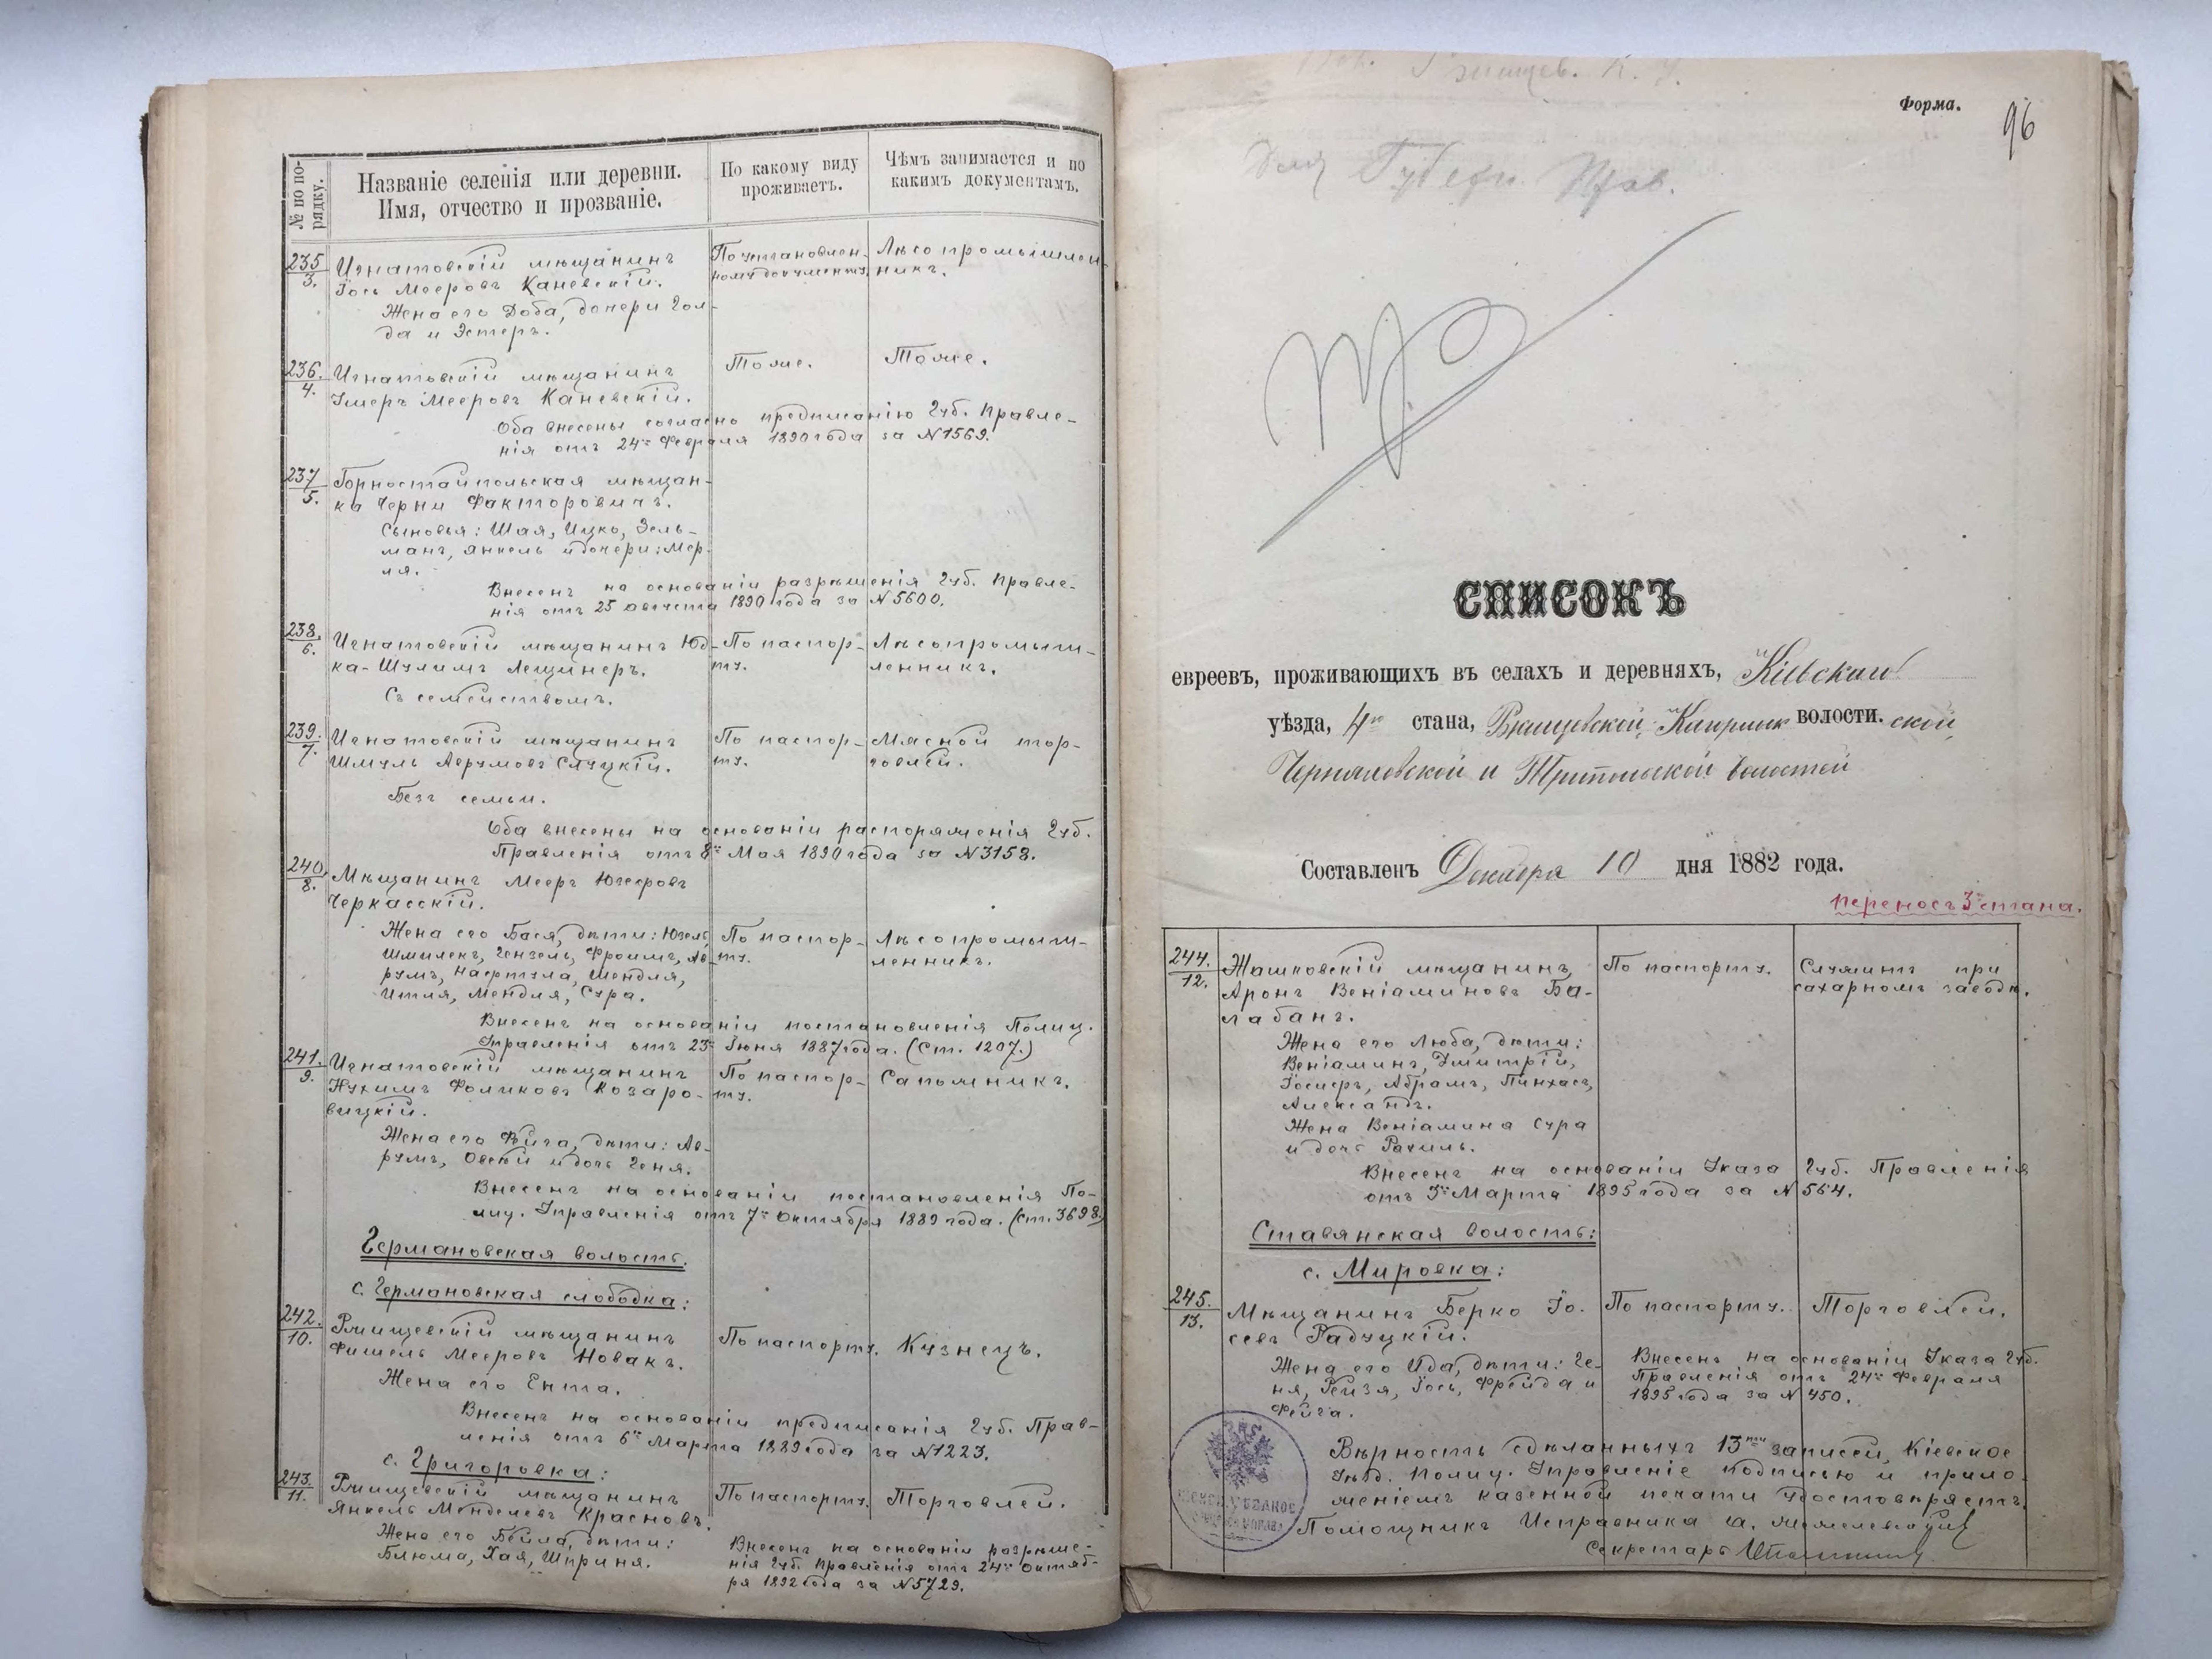 № по по-
рядку.
Названіе селенія или деревни.
Имя, отчество и прозваніе.
По какому виду
проживаетъ.
Чѣмъ занимается и по
какимъ документамъ.
235
3.
Игнатовскій мѣщанинъ
Іось Мееровъ Каневскій.
Жена его Доба, дочери Гол-
да и Эстеръ.
По установлен-
ному документу.
Лѣсопромышлен-
никъ.
236.
4.
Игнатовскій мѣщанинъ
Умеръ Мееровъ Каневскій.
Тоже.
Тоже.
Оба внесены согласно предписанію Губ. Правле-
нія отъ 24го Февраля 1890 года за №1569.
237
5.
Горностайпольская мѣщан-
ка Черни Факторовичъ.
Сыновья: Шая, Ицко, Зель-
манъ, Янкель и дочери: Мер-
ля.
Внесенъ на основаніи разрѣшенія Губ. Правле-
нія отъ 25 августа 1890 года за №5600.
238.
6.
Игнатовскій мѣщанинъ Юд-
ка-Шулимъ Лещинеръ.
Съ семействомъ.
По паспор-
ту.
Лѣсопромыш-
ленникъ.
239.
7.
Игнатовскій мѣщанинъ
Шмуль Аврумовъ Слуцкій.
Безъ семьи.
По паспор-
ту.
Мясной тор-
говлей.
Оба внесены на основаніи распоряженія Губ.
Правленія отъ 8го Мая 1890 года за №3158.
240.
8.
Мѣщанинъ Мееръ
Черкасскій.
Жена его Бася, дѣти: Юзель,
Шмилекъ, Гензель, Фроимъ, Ав-
румъ, Шендля,
Итля, Мендля, Сура.
По паспор-
ту.
Лѣсопромыш-
ленникъ.
Внесенъ на основаніи постановленія Полиц.
Управленія отъ 23го Іюня 1887 года. (Ст. 1207.)
241.
9.
Игнатовскій мѣщанинъ
Нухимъ Фоликовъ Козаро-
вицкій.
Жена его Фейга, дѣти: Ав-
румъ, Овсей и дочь Геня.
По паспор-
ту.
Сапожникъ.
Внесенъ на основаніи постановленія По-
лиц. Управленія отъ 7го Октября 1889 года. (Ст. 3698)
Германовская волость.
с. Германовская слободка:
242.
10.
Ржищевскій мѣщанинъ
Фишель Мееровъ Новакъ.
Жена его Ента.
По паспорту.
Кузнецъ.
Внесенъ на основаніи предписанія Губ. Прав-
ленія отъ 6го Марта 1889 года за №1223.
с. Григоровка:
243.
11.
Ржищевскій мѣщанинъ
Янкель Менделевъ Красновъ.
Жена его Бейла, дѣти:
Блюма, Хая, Шприня.
По паспорту.
Торговлей.
Внесенъ на основаніи разрѣше-
нія Губ. Правленія отъ 24го Октяб-
ря 1892 года за №5729.
Форма.
96
Для Губерн. Прав.
СПИСОКЪ
евреевъ, проживающихъ въ селахъ и деревняхъ, Кіевскаго
уѣзда, 4го стана, Ржищевской, Кагарлык волости. ской,
Черняховской и Трипольской волостей
Составленъ Декабря 10 дня 1882 года.
переносъ 3го стана.
244.
12.
Жашковскій мѣщанинъ
Аронъ Веніаминовъ Ба-
лабанъ.
Жена его Люба, дѣти:
Веніаминъ, Дмитрій,
Іосифъ, Абрамъ, Пинхасъ,
Александъ.
Жена Веніамина Сура
и дочь Рахиль.
По паспорту.
Служитъ при
сахарномъ заводѣ.
Внесенъ на основаніи Указа Губ. Правленія
отъ 3го Марта 1895 года за №564.
Ставянская волость:
с. Мировка:
245.
13.
Мѣщанинъ Берко Іо-
севъ Радуцкій.
Жена его Ида, дѣти: Ге-
ня, Рейзя, Іось, Фрейда и
Фейга.
По паспорту.
Торговлей.
Внесенъ на основаніи Указа Губ.
Правленія отъ 24го Февраля
1895 года за №450.
Вѣрность сдѣланныхъ 13ти записей, Кіевское
Уѣзд. Полиц. Управленіе подписью и прило-
женіемъ казенной печати удостовѣряетъ.
Помощникъ Исправника
Секретарь